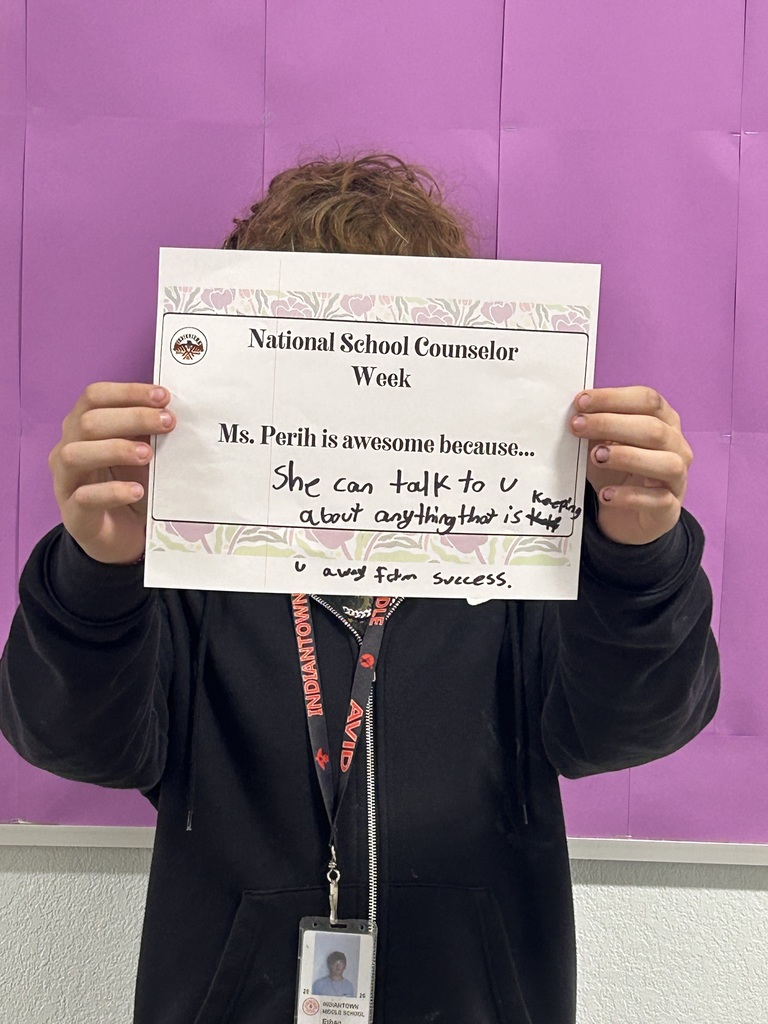 National School Counselor
Week
Ms. Perih is awesome because...
She can talk to u
about anything that is Keeping
u away from success.
INDIANTOWN
DLE
AVID
INDIANTOWN
MIDDLE SCHOOL